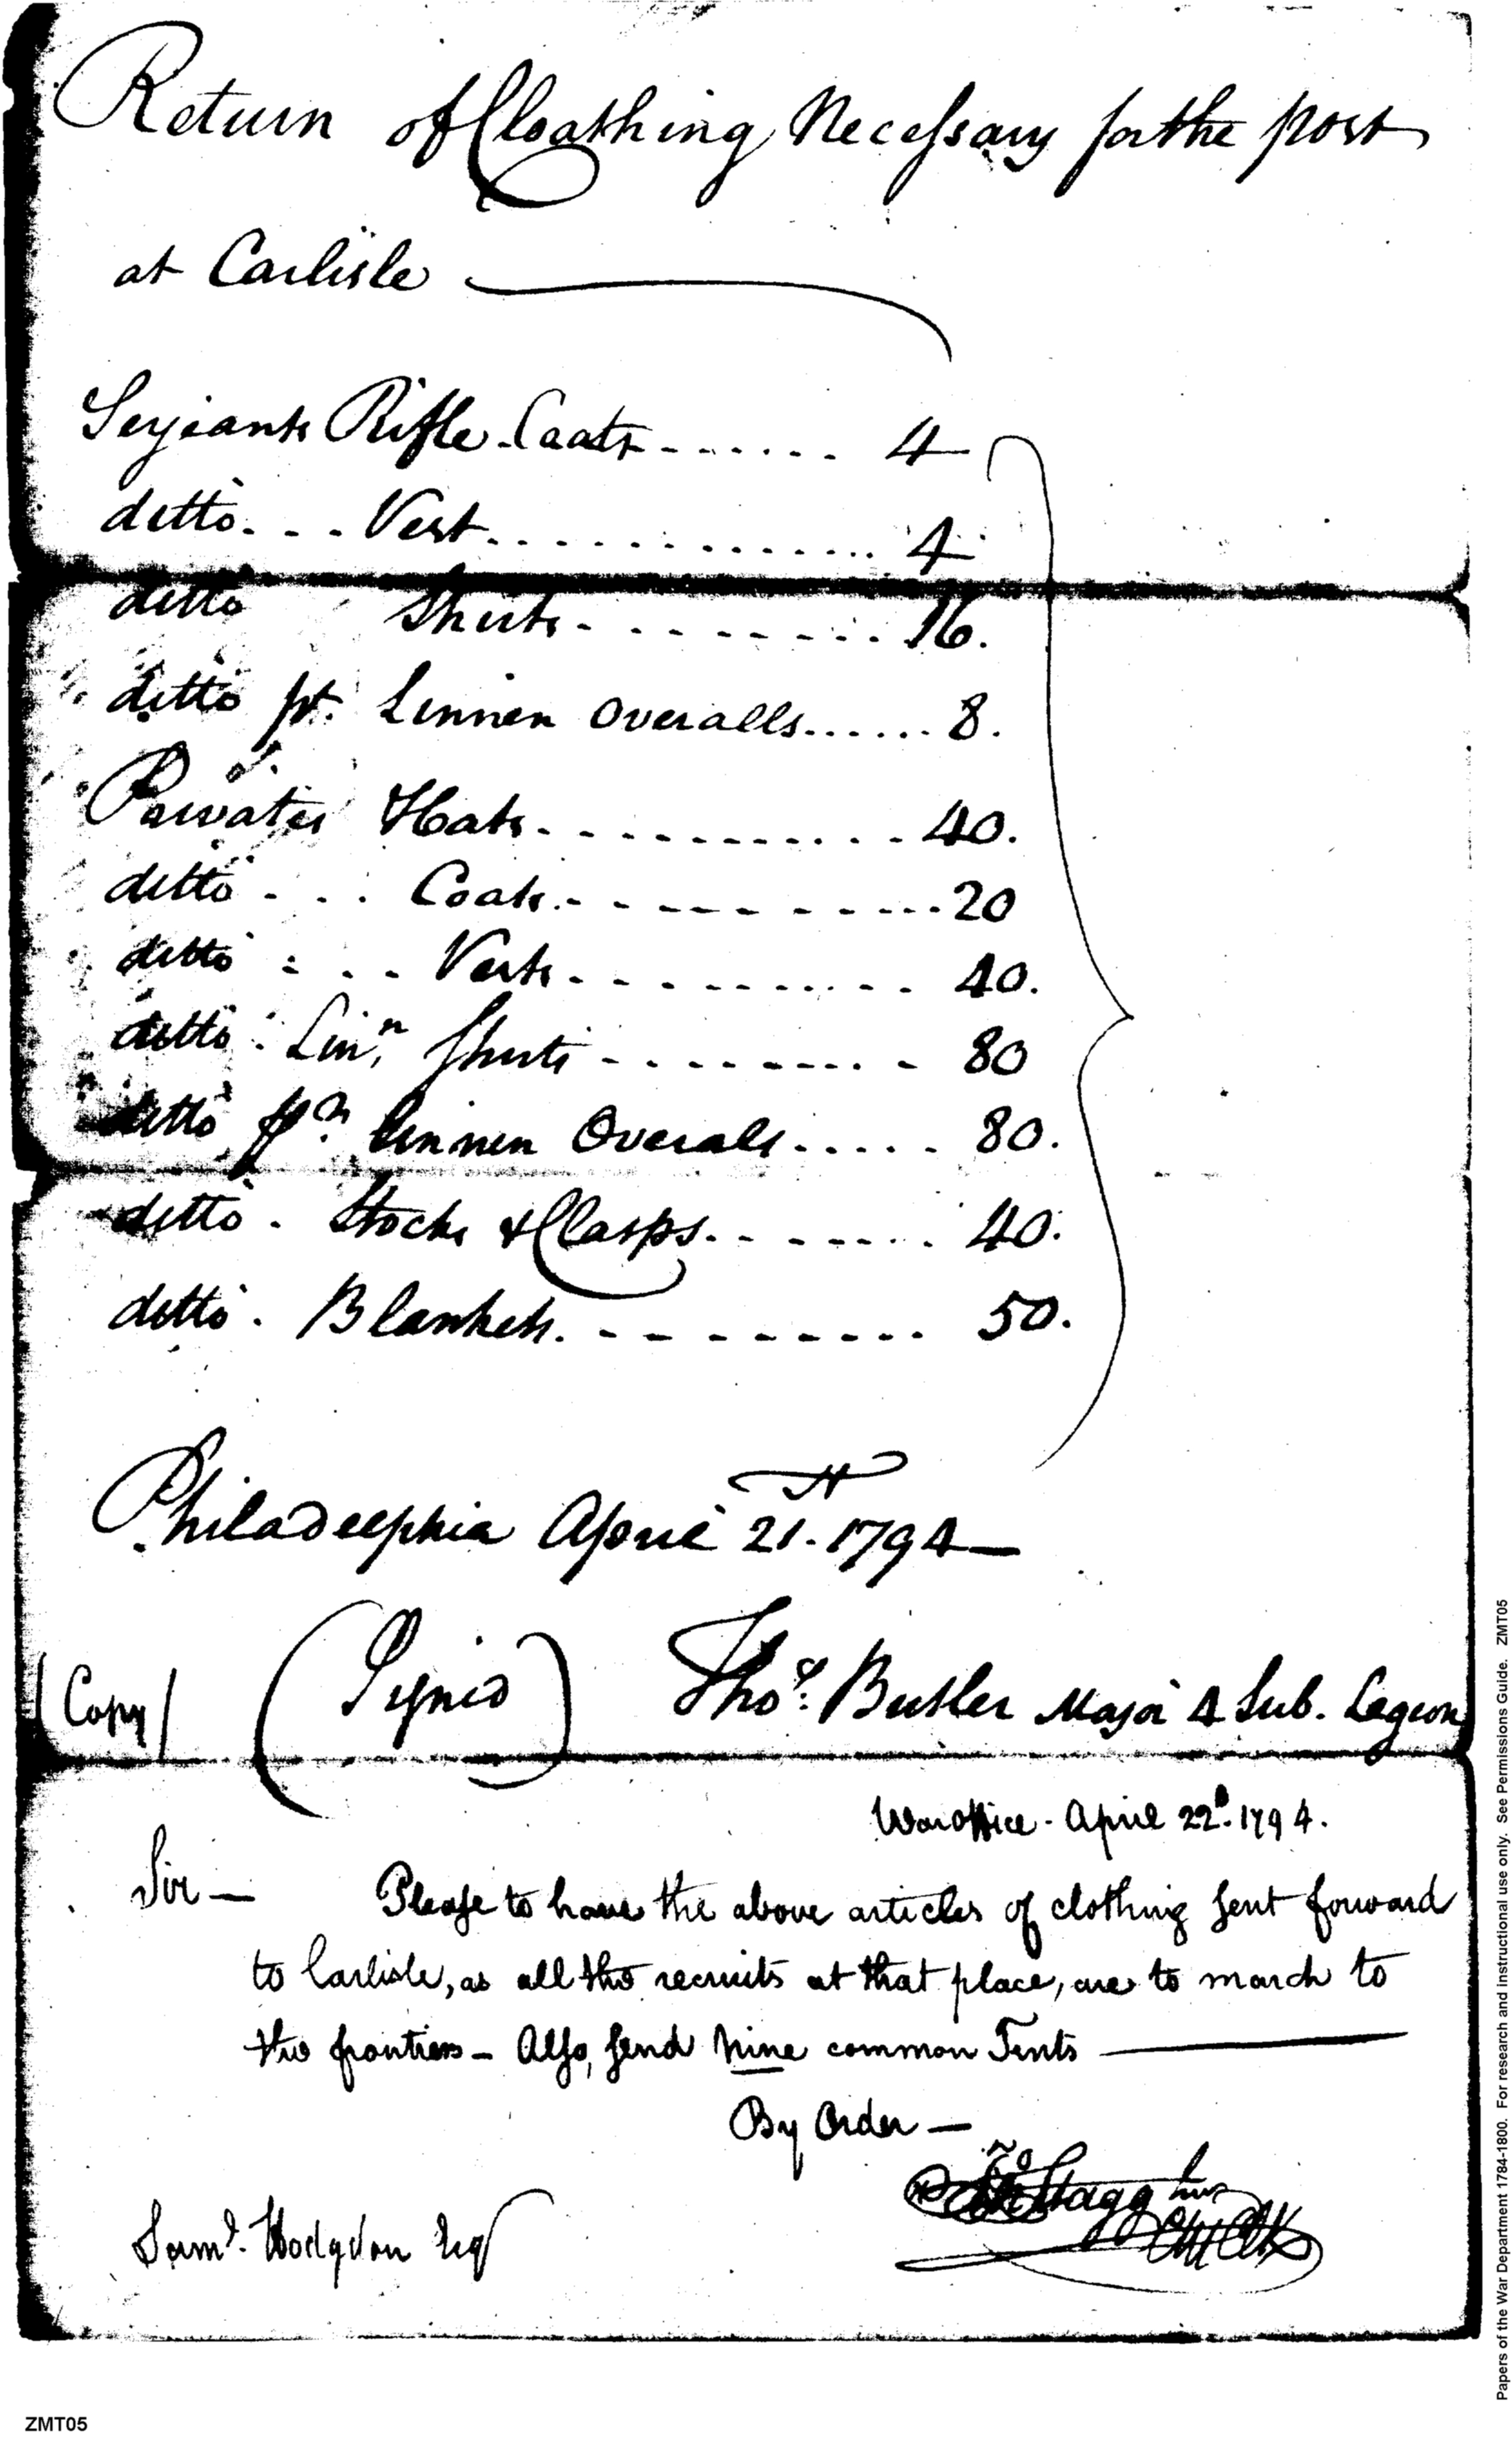 Return of Cloathing Necessary for the post
at Carlisle
Serjeants Rifle Coats 4
ditto Vest 4
ditto Shirts 16.
ditto pr. Linnen Overalls 8.
Privates Hats 40.
ditto Coats 20
ditto Vests 40.
ditto Lin.n Shirts 80
ditto pr. linnen Overals 80.
ditto. Stocks & Clasps 40.
ditto. Blankets 50.
Philadelphia April 21st. 1794
(Copy) (Signed) Thos. Butler Major 4 Sub. Legion
War Office - April 22d. 1794.
Sir — Please to have the above articles of clothing sent forward
to Carlisle, as all the recruits at that place, are to march to
the frontiers - Also, send Nine common Tents
By Order —
Jno Stagg Junr
Chf Clk
Saml. Hodgdon Esq
Papers of the War Department 1784-1800. For research and instructional use only. See Permissions Guide. ZMT05
ZMT05